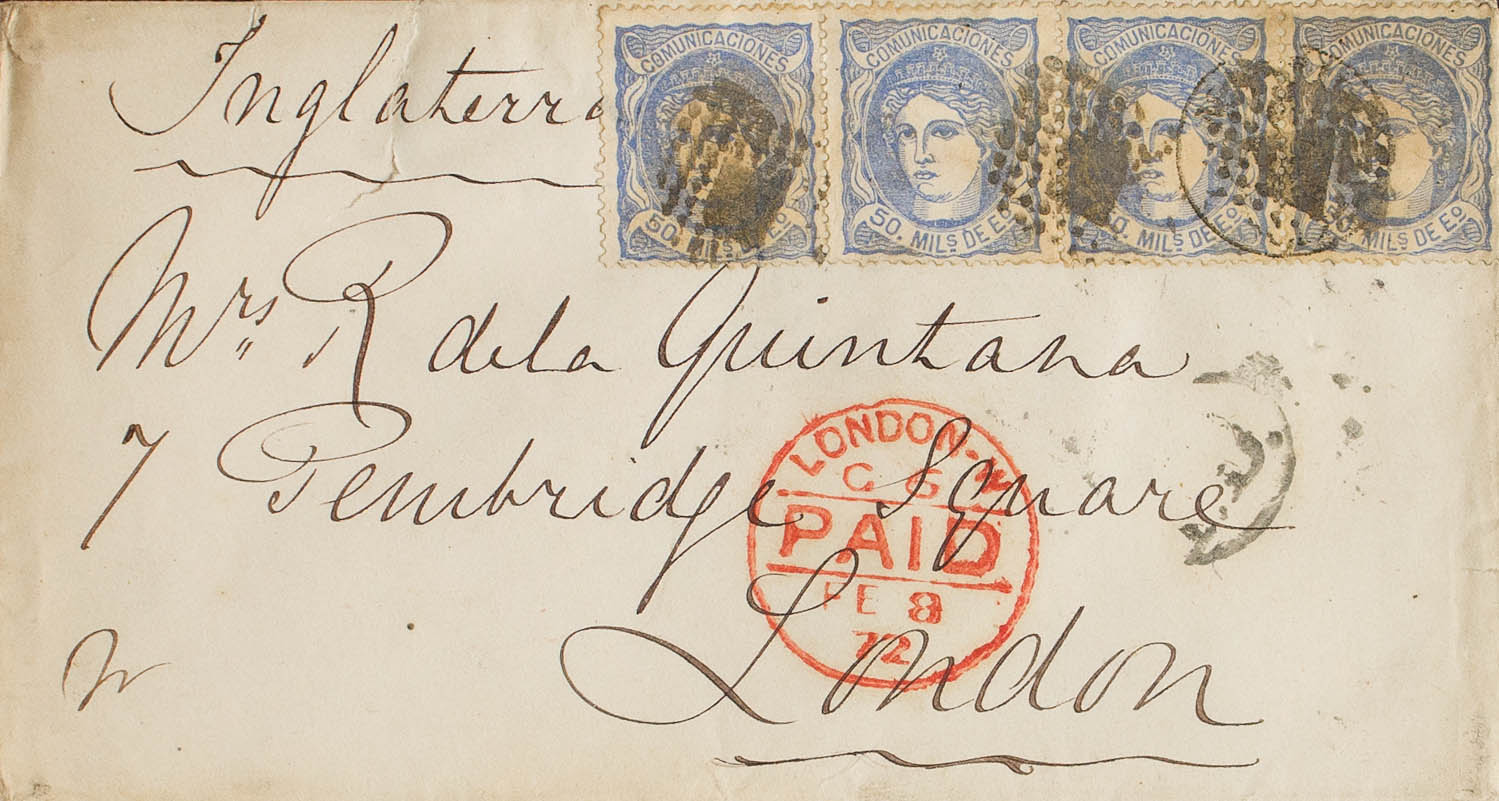 Inglaterra
COMUNICACIONES
50. MILS DE EO
COMUNICACIONES
50. MILS DE EO
COMUNICACIONES
50. MILS DE EO
COMUNICACIONES
50. MILS DE EO
Mrs R de la Quintana
7 Pembridge Square
London
W
LONDON-W
C 6
PAID
FE 8
72